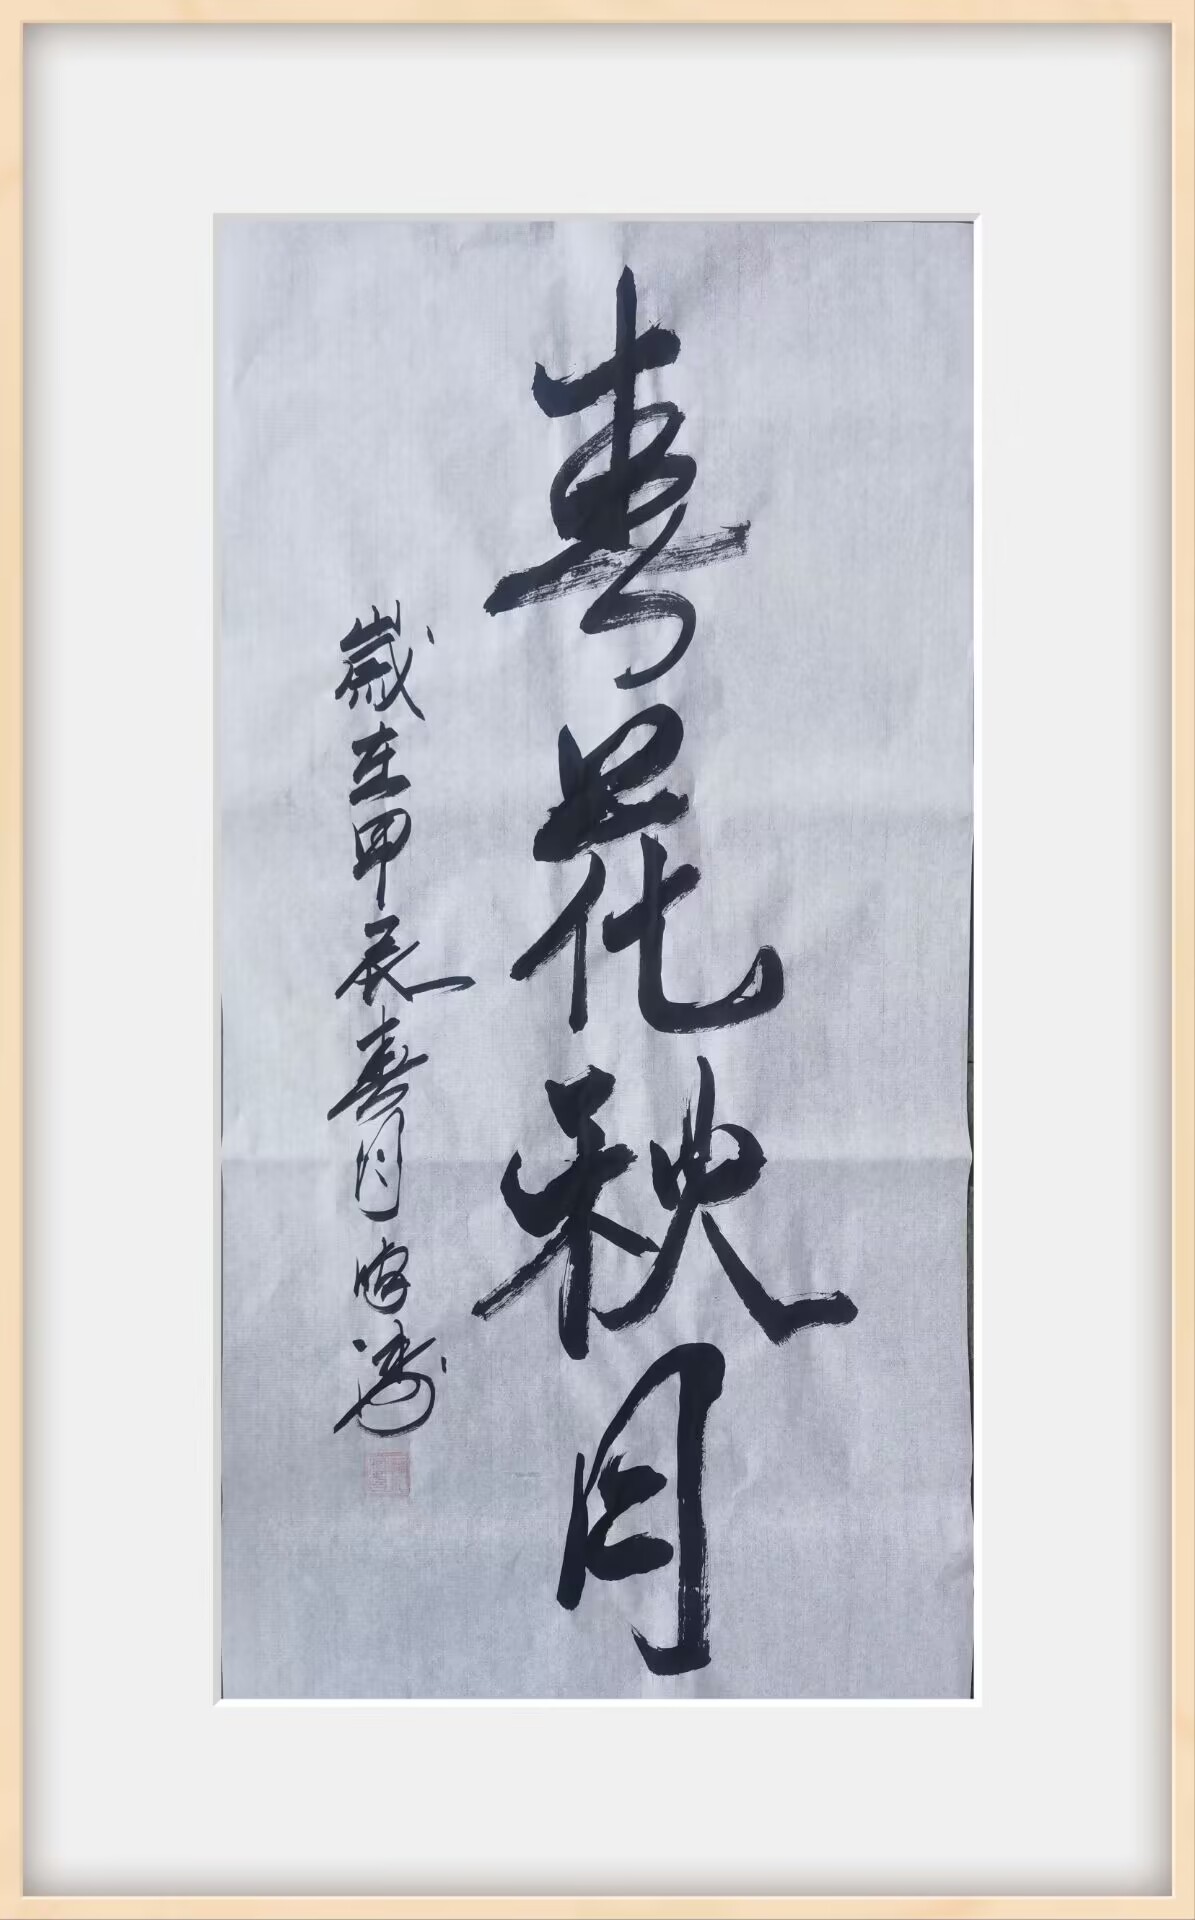 春花秋月
歲在甲辰春月 海濤